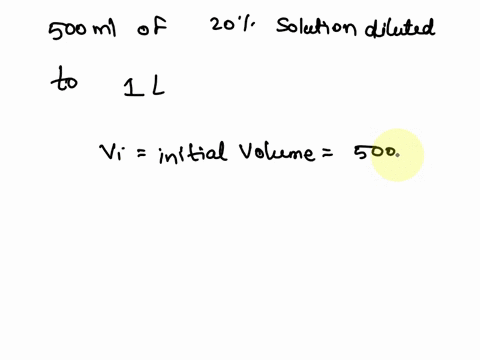 500 ml of 20% Solution diluted
to 1 L
Vi = initial Volume = 500.